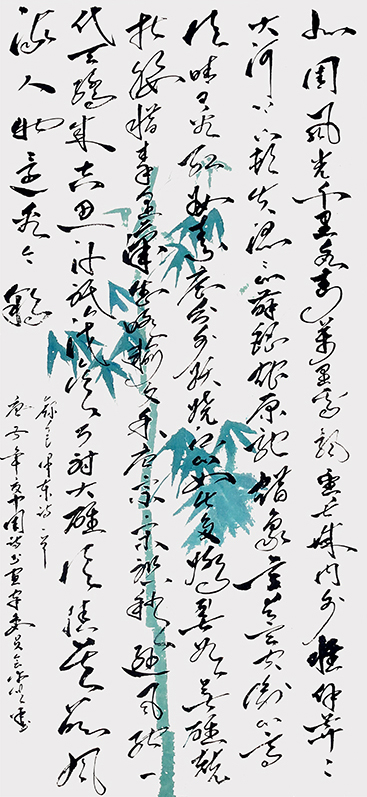 北国風光千里冰封萬里雪飘望长城内外惟余莽〻
大河上下顿失滔〻山舞銀蛇原驰蜡象欲与天公试比高
须晴日看红妆素裹分外妖娆江山如此多娇引无数英雄竞
折腰惜秦皇汉武略输文采唐宗宋祖稍逊風骚一
代天骄成吉思汗只识弯弓射大雕俱往矣数風
流人物还看今朝
錄毛泽東詩一首
庚子年